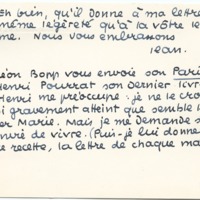 Eh bien, qu'il donne à ma lettre
même légèreté qu'à la vôtre le
me. Nous vous embrassons
Jean.
éon Bopp vous envoie son Paris
Henri Pourrat son dernier livre
Henri me préoccupe : je ne le croi
si gravement atteint que semble l
er Marie. Mais je me demande s
envie de vivre. (Puis-je lui donne
e recette, la lettre de chaque ma